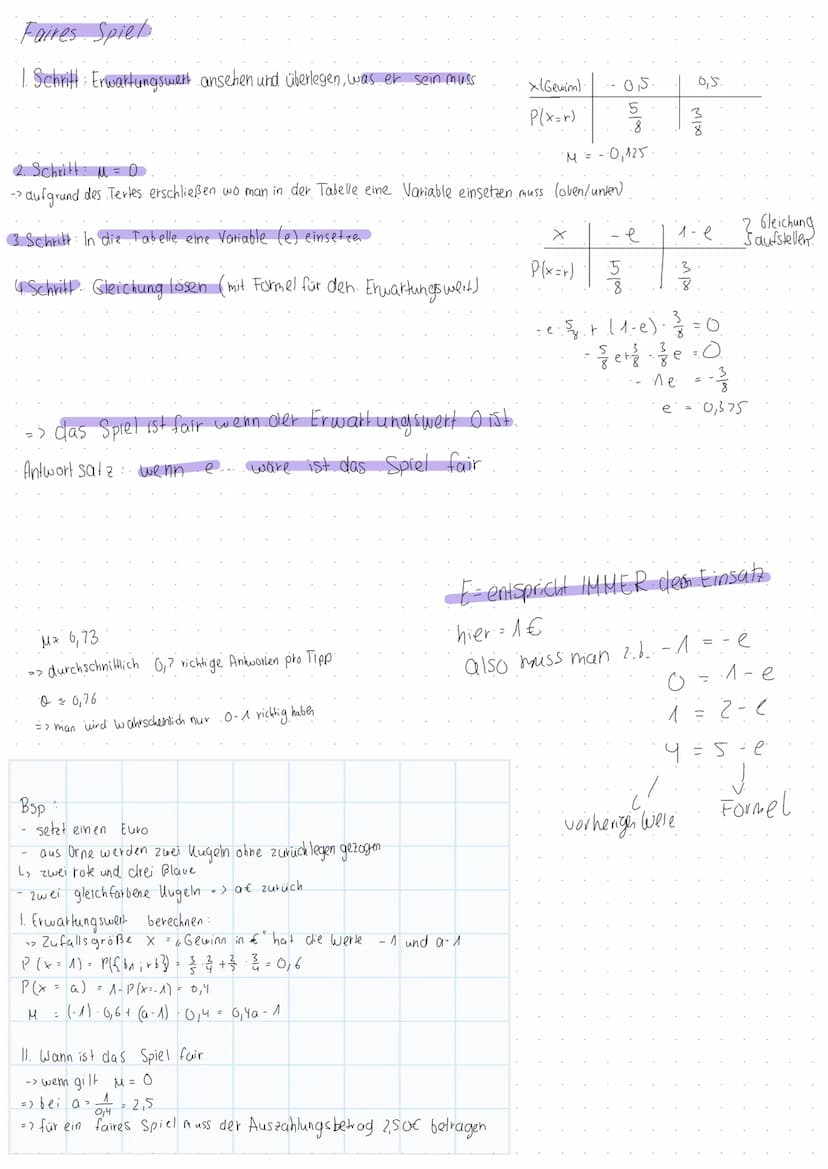 Faires Spiel:
1. Schritt: Erwartungswert ansehen und überlegen, was er sein muss
x(Gewinn) | -0,5 | 0,5
P(x=r) | 5/8 | 3/8
M = -0,125
2. Schritt: M = 0
-> aufgrund des Textes erschließen wo man in der Tabelle eine Variable einsetzen muss (oben/unten)
3. Schritt: In die Tabelle eine Variable (e) einsetzen
x | -e | 1-e } Gleichung aufstellen
P(x=r) | 5/8 | 3/8
4 Schritt: Gleichung lösen (mit Formel für den Erwartungswert)
-e · 5/8 + (1-e) · 3/8 = 0
- 5/8 e + 3/8 - 3/8 e = 0
- 1e = - 3/8
e = 0,375
=> das Spiel ist fair wenn der Erwartungswert 0 ist.
Antwortsatz: wenn e... wäre ist das Spiel fair
E = entspricht IMMER dem Einsatz
hier = 1€
also muss man z.b. -1 = -e
0 = 1-e
1 = 2-e
4 = 5-e
vorherigen Werte
Formel
M≈ 0,73
=> durchschnittlich 0,7 richtige Antworten pro Tipp
σ ≈ 0,76
=> man wird wahrscheinlich nur 0-1 richtig haben
Bsp:
- setzt einen Euro
- aus Orne werden zwei Kugeln ohne zurücklegen gezogen
↳ zwei rote und drei Blaue
- zwei gleichfarbene Kugeln => a€ zurück
I. Erwartungswert berechnen:
=> Zufallsgröße X = „Gewinn in €" hat die Werte -1 und a-1
P(x=1) = P({br; rb}) = 3/5 · 2/4 + 2/5 · 3/4 = 0,6
P(x = a) = 1-P(x=-1) = 0,4
M = (-1) · 0,6 + (a-1) · 0,4 = 0,4a - 1
II. Wann ist das Spiel fair
-> wenn gilt M = 0
=> bei a = 1/0,4 = 2,5
=> für ein faires Spiel muss der Auszahlungsbetrag 2,50€ betragen